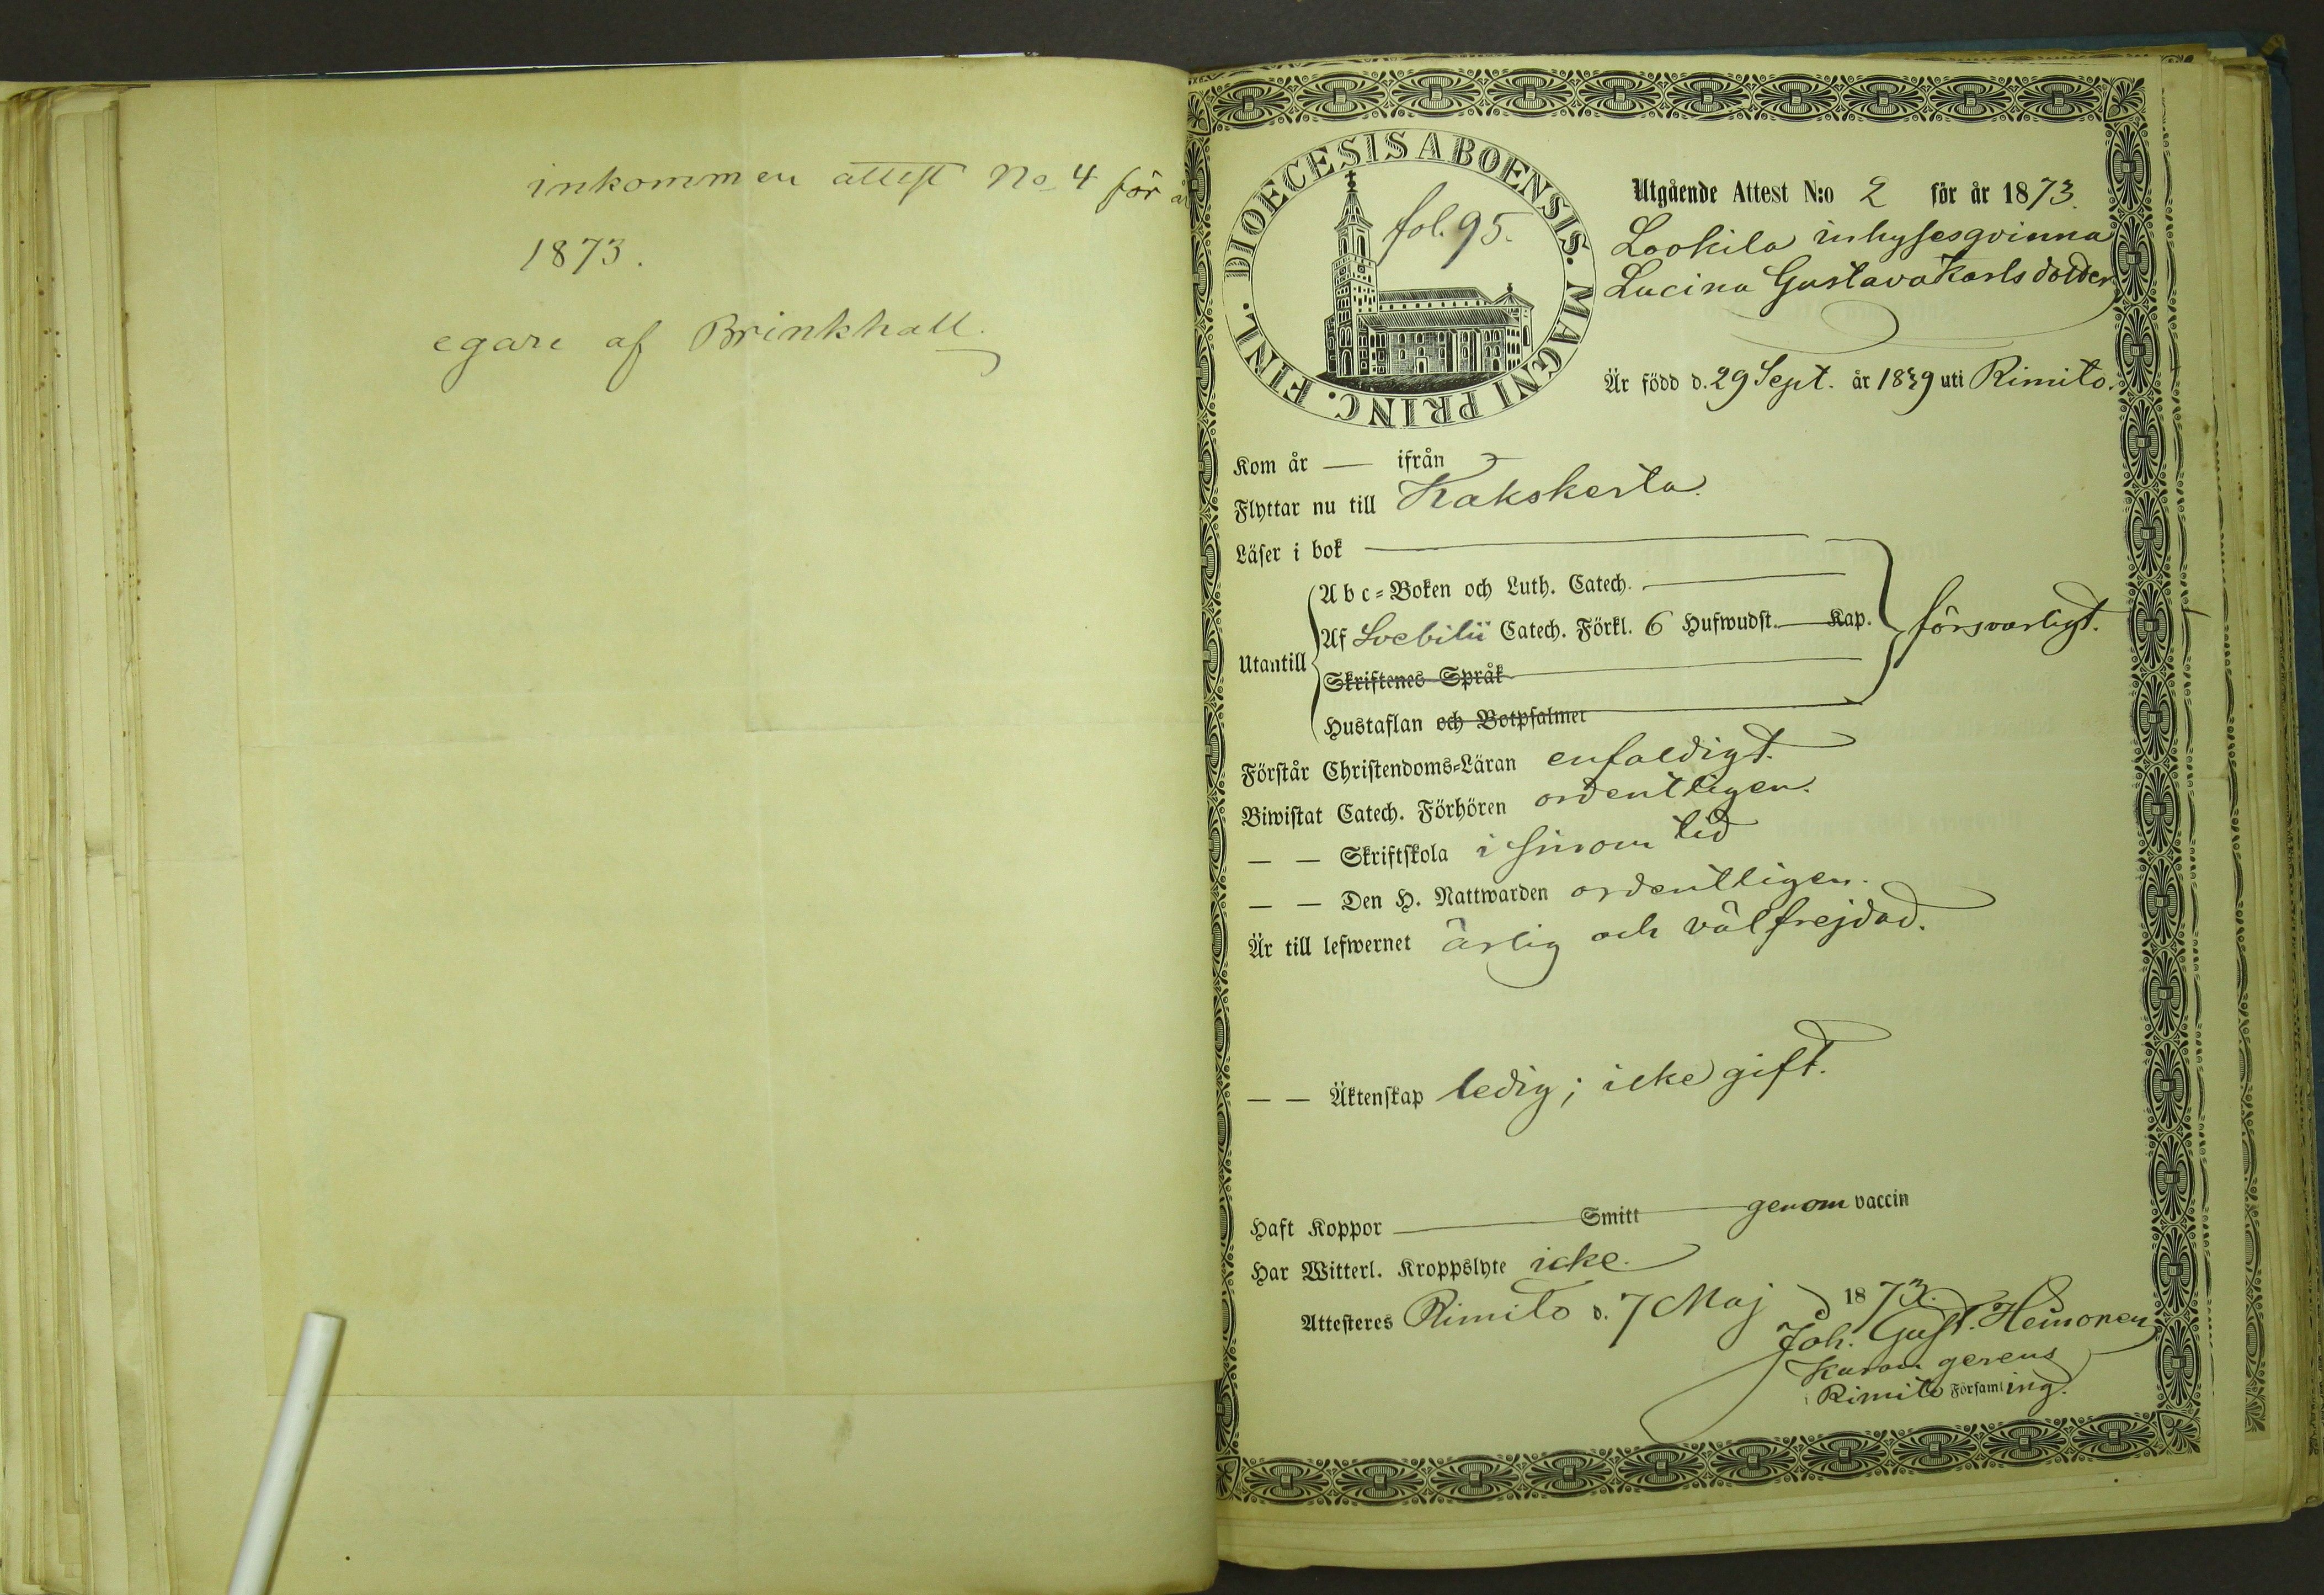 inkommen attest No 4 för år
1873.
egare af Brinkhall.
DIOECESIS ABOENSIS. MAGNI PRINC. FINL.
fol. 95.
Utgående Attest N:o 2 för år 1873.
Lookila inhysesqvinna
Lucina Gustava Karlsdotder
Är född d. 29 Sept. år 1839 uti Rimito.
Kom år — ifrån
Flyttar nu till Kakskerta.
Läser i bok
Utantill
Abc-Boken och Luth. Catech.
Af Svebilii Catech. Förkl. 6 Hufwudst. Kap.
försvarligt.
Skriftenes Språk
Hustaflan och Botpsalmer
Förstår Christendoms-Läran enfaldigt.
Biwistat Catech. Förhören ordentligen.
— — Skriftskola i sinom tid
— — Den H. Nattwarden ordentligen.
Är till lefwernet ärlig och välfrejdad.
— — Äktenskap ledig; icke gift.
Haft Koppor — Smitt — genom vaccin
Har Witterl. Kroppslyte icke.
Attesteres Rimito d. 7 Maj 1873.
Joh. Gust. Heinonen
Kuram gerens
i Rimito Församling.